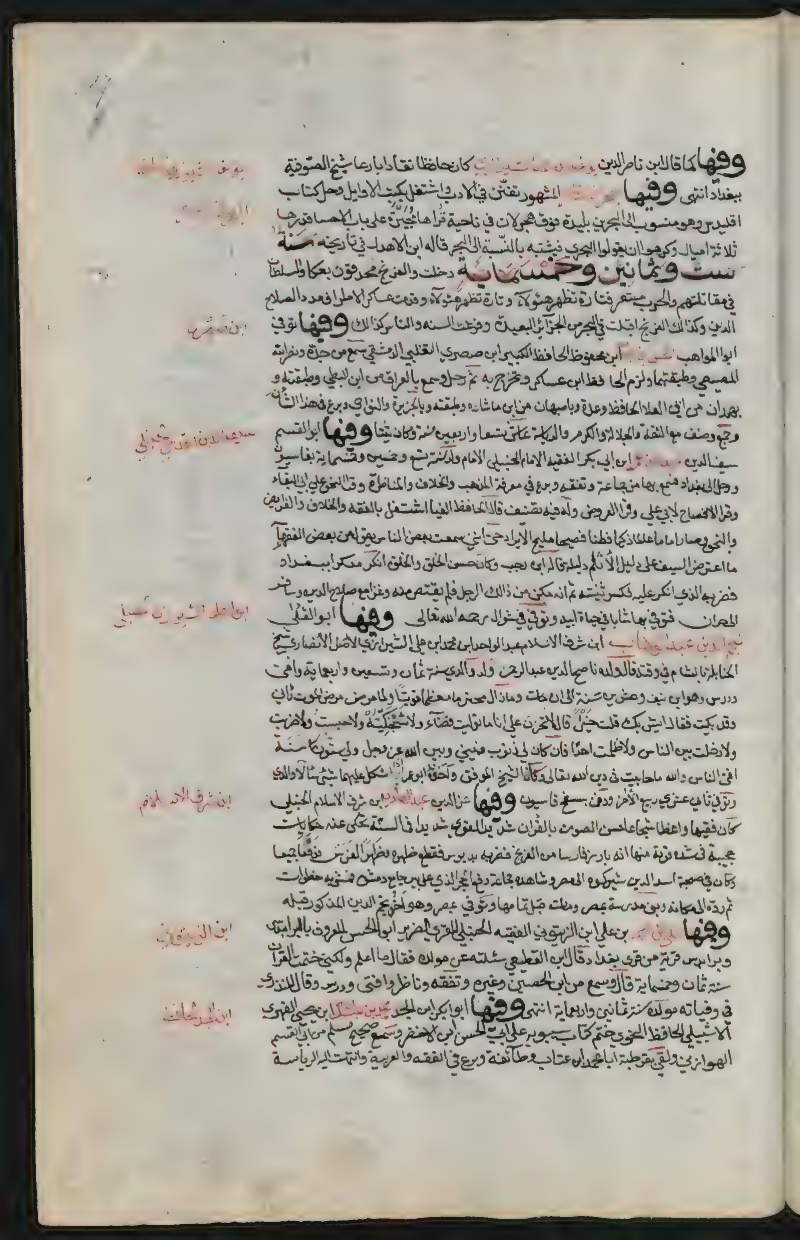 وفيها كما قال ابن ناصر الدين يوسف بن كان حافظا نقادا بارعا شيخ الصوفية
ببغداد انتهى وفيها المشهور تفنن في الادب واشتغل بكتب الاوايل وحل كتاب
اقليدس وهو منسوب الى البحرين بليدة فوق في ناحية قراها على باب الاحساء
ثلاثة اميال وكرهوا ان يقولوا البحري فيشتبه بالنسبة الى البحر قاله ابن الاهدل في تاريخه سنة
ست وثمانين وخمسماية دخلت والفرنج محدقون بعكا والسلطان
في مقابلتهم والحرب مستعر فتارة تظهر هؤلاء وتارة تظهر هؤلاء وقدمت عساكر الاطراف مددا لصلاح
الدين وكذلك الفرنج اقبلت في البحر من الجزائر البعيدة وفرغت السنة والناس كذلك وفيها توفي
ابو المواهب ابن محفوظ الحافظ الكبير ابن صصرى التغلبي الدمشقي سمع من جده ونصرالله
المصيصي وطبقتهما ولزم الحافظ ابن عساكر وتخرج به ثم رحل وسمع بالعراق من ابن البطي وطبقته و
بهمدان من ابي العلا الحافظ وعدة وباصبهان من ابن ماشاده وطبقته وبالجزيرة والنواحي وبرع في هذا الشأن
وجمع وصنف مع الثقة والجلالة والكرم والرياسة عاش تسعا واربعين سنة وكان ثقة وفيها ابو القسم
سيف الدين ابن ابي بكر الفقيه الامام الحنبلي الامام ولد سنة تسع وخمسين وخمسماية بقاسيون
ورحل الى بغداد فسمع بها من جماعة وتفقه وبرع في معرفة المذهب والخلاف والمناظرة وقرا النحو على ابي البقاء
وقرا الايضاح لابي علي وقرا العروض وله فيه تصنيف قال الحافظ الضيا اشتغل بالفقه والخلاف والفرايض
والنحو وصار اماما عالما ذكيا فطنا فصيحا مليح الايراد حتى انني سمعت بعض الناس يقول عن بعض الفقها
ما اعترض السيف على دليل الا ثلم دليله قال ابن رجب وكان حسن الخلق والخلق انكر منكرا ببغداد
فضربه الذي انكر عليه فكسر ثنيته ثم انه مكن من ذلك الرجل فلم يقتص منه وغزا مع صلاح الدين وسافر
الى حران فتوفي بها شابا في حياة ابيه وتوفي في شوال رحمه الله تعالى وفيها ابو الفتح
نجم الدين عبد الوهاب ابن شرف الاسلام عبد الواحد بن محمد بن علي الشيرازي الاصل الانصاري شيخ
الحنابلة بالشام في وقته قال ولده ناصح الدين عبد الرحمن ولد والدي سنة ثمان وتسعين واربعماية وافتى
ودرس وهو ابن نيف وعشرين سنة الى ان مات وما زال محترما معظما ولما مرض مرض الموت
وقد بكيت فقال ايش بك قلت خير قال لا تحزن علي انا ما توليت قضاء ولا شحنكية ولا حبست ولا ضربت
ولا دخلت بين الناس ولا ظلمت احدا فان كان لي ذنوب فبيني وبين الله عز وجل ولي ستون سنة
افتي الناس والله ما حابيت في دين الله تعالى وكان الشيخ الموفق واخوه ابو عمر اذا اشكل عليهما شيء سالا والدي
وتوفي ثاني عشرى ربيع الاخر ودفن بسفح قاسيون وفيها عز الدين عبد الهادي بن شرف الاسلام الحنبلي
كان فقيها واعظا شجاعا حسن الصوت بالقران شديد القوى شديدا في السنة يحكى عنه حكايات
عجيبة في شدة قوته منها انه بارز فارسا من الفرنج فضربه بدبوس فقطع ظهره وظهر الفرس فوقعا جميعا
وكان في صحبة اسد الدين شيركوه الى مصر وشاهده جماعة رفع الحجر الذي على بير جامع دمشق فمشى به خطوات
ثم رده الى مكانه وبنى مدرسة بمصر ومات قبل تمامها وتوفي بمصر وهو اخو نجم الدين المذكور قبله
وفيها بن علي ابن الزيتوني الفقيه الحنبلي المقري الضرير ابو الحسن المعروف بالبرابدي
وبرابدس قرية من قرى بغداد قال ابن القطيعي سئلته عن مولده فقال ما اعلم ولكني ختمت القران
سنة ثمان وخمسماية قال وسمع من ابن الحصين وغيره وتفقه وناظر وافتى ودرس وقال المنذري
في وفياته مولده سنة ثمانين واربعماية انتهى وفيها ابو بكر ابن الجد محمد بن عبد الله ابن يحيى الفهري
الاشبيلي الحافظ النحوي ختم كتاب سيبويه على ابي الحسن ابن الاخضر وسمع صحيح مسلم من ابي القسم
الهوازني ولقي بقرطبة ابا محمد ابن عتاب وطائفة وبرع في الفقه والعربية وانتهت اليه الرياسة